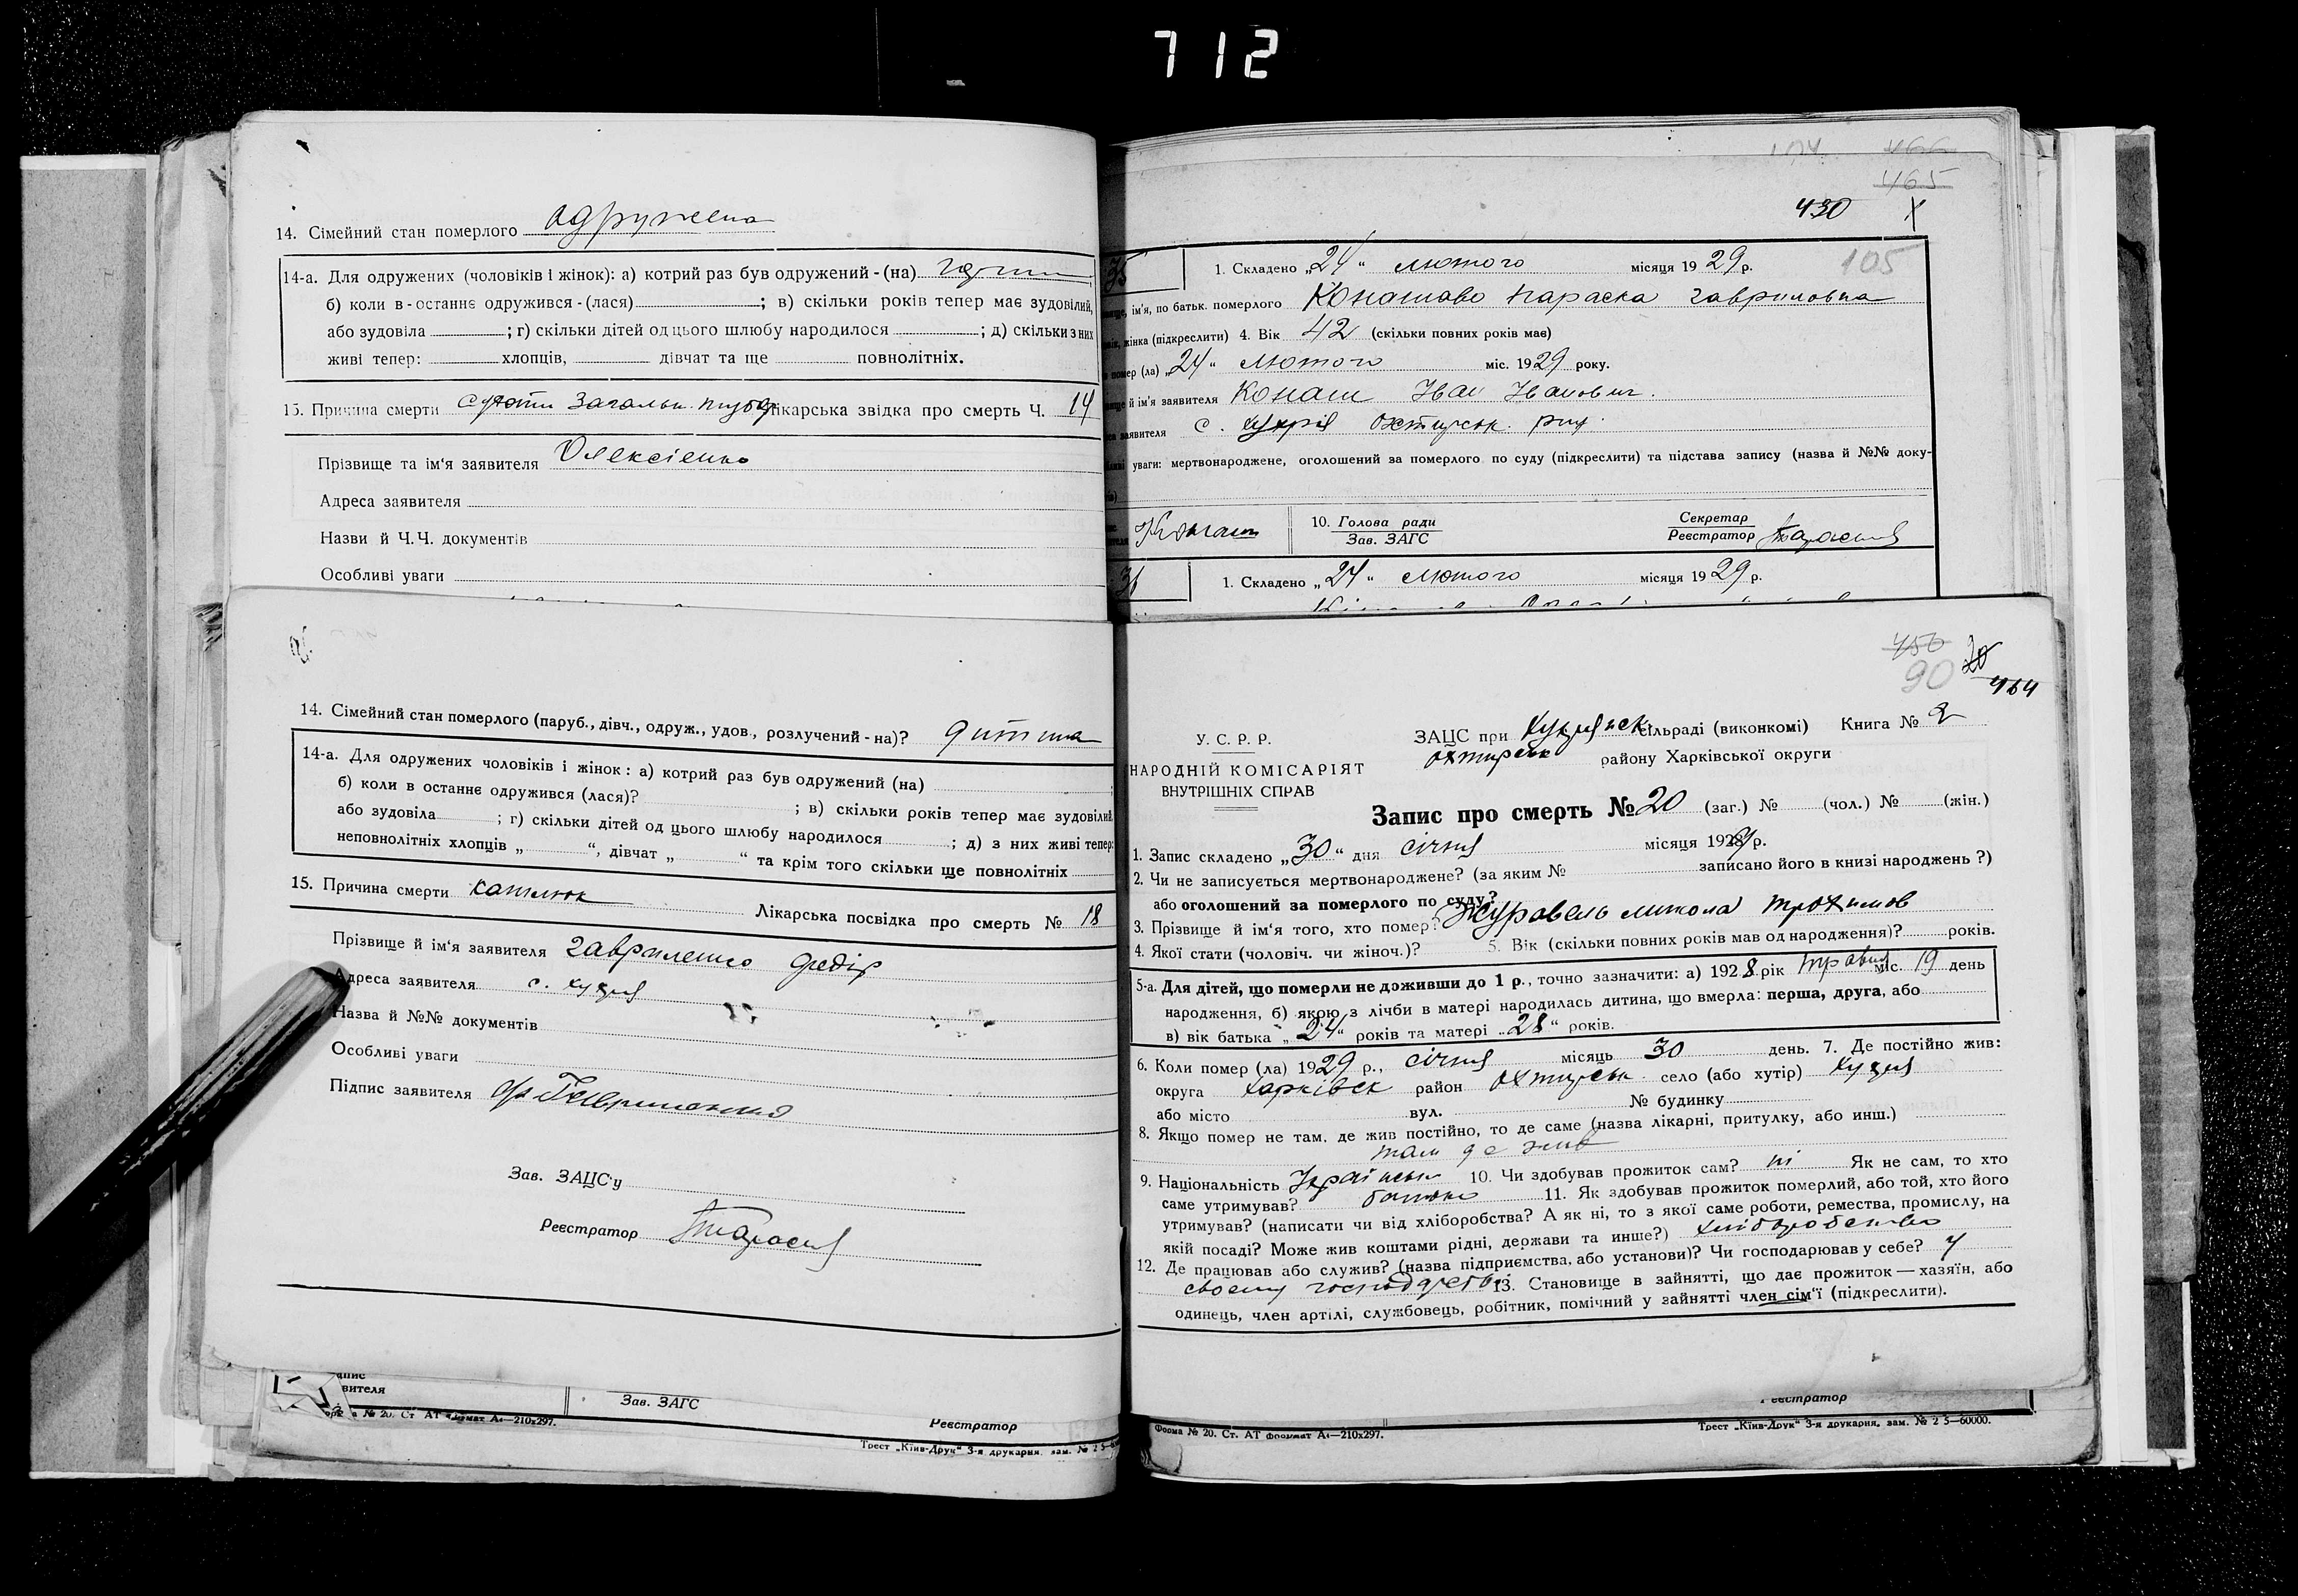 712
14. Сімейний стан померлого одружена
14-а. Для одружених (чоловіків і жінок): а) котрий раз був одружений - (на)
б) коли в - останнє одружився - (лася) ; в) скільки років тепер має зудовілий,
або зудовіла ; г) скільки дітей од цього шлюбу народилося ; д) скільки з них
живі тепер: хлопців, дівчат та ще повнолітніх.
15. Причина смерти Лікарська звідка про смерть Ч. 14
Прізвище та ім'я заявителя Олексіенко
Адреса заявителя
Назви й Ч.Ч. документів
Особливі уваги
466
465
430
105
35 1. Складено „24“ лютого місяця 1929 р.
ім'я, по батьк. померлого Конашова Параска Гавриловна
жінка (підкреслити) 4. Вік 42 (скільки повних років має)
помер (ла) „24“ лютого міс. 1929 року.
й ім'я заявителя Конаш Іван Іванович.
заявителя с. Кукрія Охтирськ. рну.
уваги: мертвонароджене, оголошений за померлого по суду (підкреслити) та підстава запису (назва й №№ доку-
10. Голова ради Секретар
Зав. ЗАГС Реєстратор
36 1. Складено „24“ лютого місяця 1929 р.
14. Сімейний стан померлого (паруб., дівч., одруж., удов., розлучений - на)? дитина
14-а. Для одружених чоловіків і жінок: а) котрий раз був одружений (на)
б) коли в останнє одружився (лася)? ; в) скільки років тепер має зудовілий
або зудовіла ; г) скільки дітей од цього шлюбу народилося ; д) з них живі тепер:
неповнолітніх хлопців „ “, дівчат „ “ та крім того скільки ще повнолітніх
15. Причина смерти катлюк Лікарська посвідка про смерть № 18
Прізвище й ім'я заявителя Гавриленко Федір
Адреса заявителя с. Кукрія
Назва й №№ документів
Особливі уваги
Підпис заявителя
Зав. ЗАЦС'у
Реєстратор
вителя
Зав. ЗАГС
Реєстратор
№ 20. Ст АТ формат А4—210x297.
Трест „Київ-Друк“ 3-я друкарня, зам. № 2 5—
456
90 20
464
У. С. Р. Р.
НАРОДНІЙ КОМІСАРІЯТ
ВНУТРІШНІХ СПРАВ
ЗАЦС при сільраді (виконкомі) Книга № 2
Охтирськ району Харківської округи
Запис про смерть № 20 (заг.) № (чол.) № (жін.)
1. Запис складено „30“ дня січня місяця 1929 р.
2. Чи не записується мертвонароджене? (за яким № записано його в книзі народжень ?)
або оголошений за померлого по суду?
3. Прізвище й ім'я того, хто помер? Журавель Микола Трохимов
4. Якої стати (чоловіч. чи жіноч.)? 5. Вік (скільки повних років мав од народження)? років.
5-а. Для дітей, що померли не доживши до 1 р., точно зазначити: а) 1928 рік травня міс. 19 день
народження, б) якою з лічби в матері народилась дитина, що вмерла: перша, друга, або
в) вік батька „24“ років та матері „28“ років.
6. Коли помер (ла) 1929 р., січня місяць 30 день. 7. Де постійно жив:
округа Харківськ район Охтирськ село (або хутір) Кукрія
або місто вул. № будинку
8. Якщо помер не там, де жив постійно, то де саме (назва лікарні, притулку, або инш.)
там де жив
9. Національність 10. Чи здобував прожиток сам? ні Як не сам, то хто
саме утримував? батько 11. Як здобував прожиток померлий, або той, хто його
утримував? (написати чи від хліборобства? А як ні, то з якої саме роботи, ремества, промислу, на
якій посаді? Може жив коштами рідні, держави та инше?) хліборобство
12. Де працював або служив? (назва підприємства, або установи)? Чи господарював у себе? у
своему господарстві 13. Становище в зайнятті, що дає прожиток — хазяїн, або
одинець, член артілі, службовець, робітник, помічний у зайнятті член сім'ї (підкреслити).
Реєстратор
Форма № 20. Ст. АТ формат А4—210x297.
Трест „Київ-Друк“ 3-я друкарня, зам. № 2 5—60000.